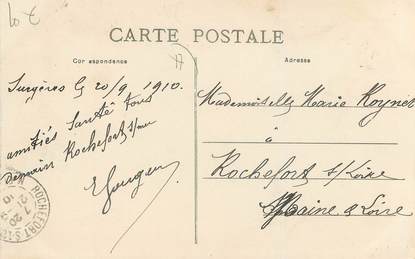 10 €
CARTE POSTALE
Correspondance
Adresse
Surgères le 20/9 1910.
amitiés Santé tous
demain Rochefort s/mer
Mademoiselle Marie Roynet
à
Rochefort s/Loire
Maine & Loire
ROCHEFORT S